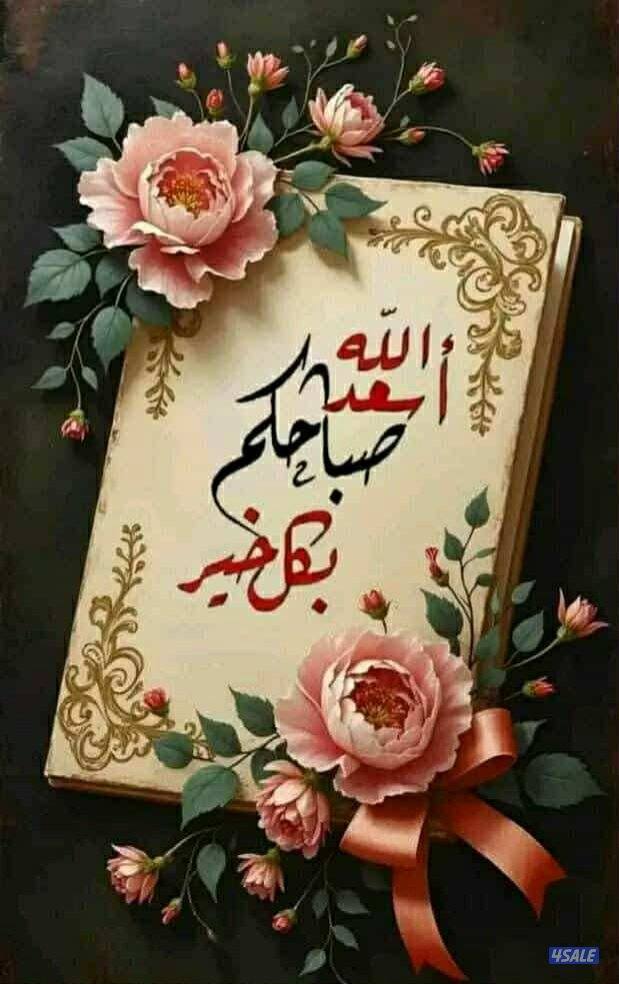 أسعد الله
صباحكم
بكل خير
4SALE